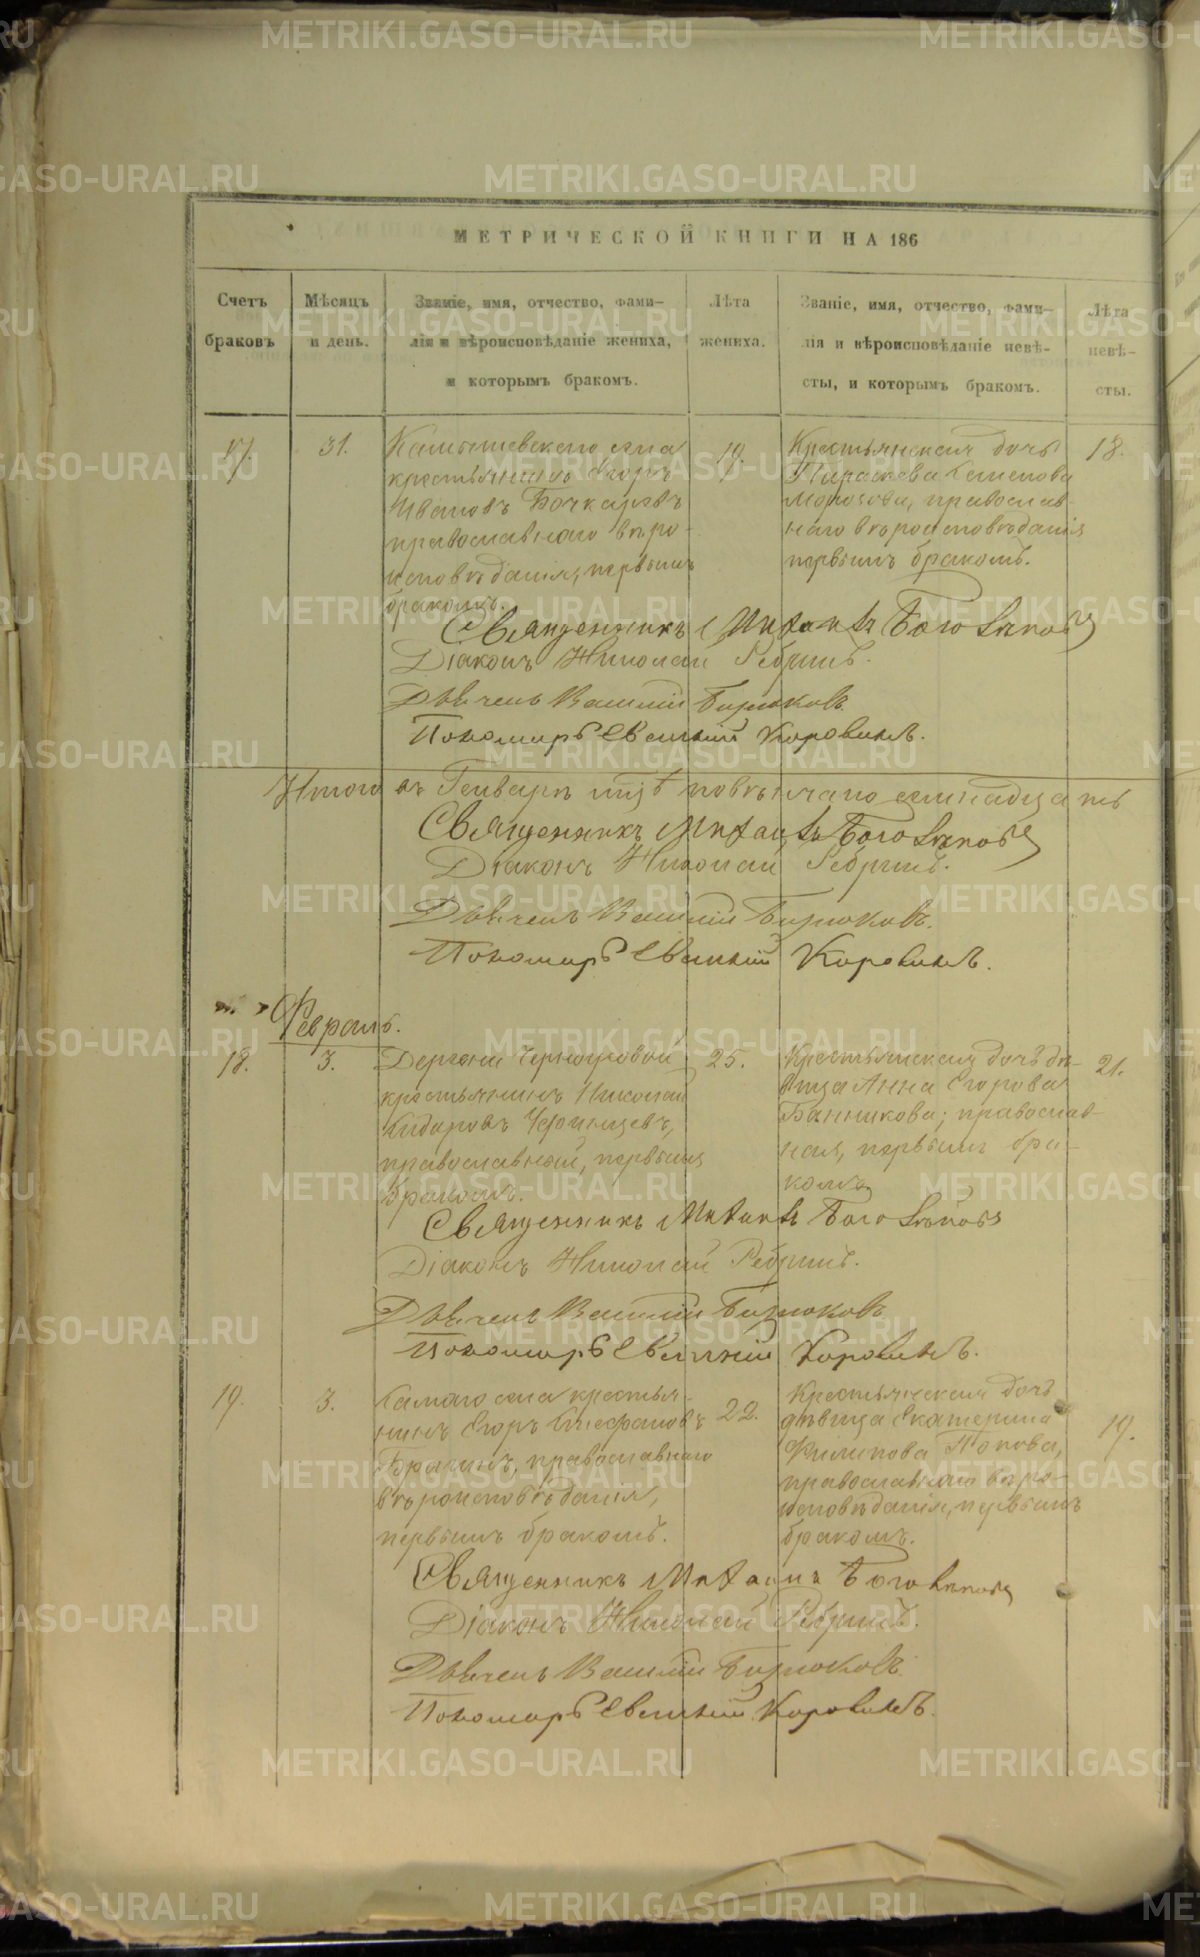 МЕТРИЧЕСКОЙ КНИГИ НА 186
Счетъ браковъ
Мѣсяцъ и день.
Званіе, имя, отчество, фами-
лія и вѣроисповѣданіе жениха,
и которымъ бракомъ.
Лѣта жениха.
Званіе, имя, отчество, фами-
лія и вѣроисповѣданіе невѣ-
сты, и которымъ бракомъ.
Лѣта невѣ-
сты.
17.
31.
Камышевскаго села
крестьянинъ Егоръ
Ивановъ Бочкаревъ
православнаго вѣро-
исповѣданія, первымъ
бракомъ.
19.
Крестьянская дочь
Параскева Семенова
Морозова, православ-
наго вѣроисповѣданія
первымъ бракомъ.
18.
Священникъ Михаилъ Боголѣповъ
Діаконъ Николай Ребринъ.
Дьячекъ Василій Бирюковъ
Пономарь Евгеній Коровинъ.
Итого въ Генварѣ повѣнчано семнадцать
Священникъ Михаилъ Боголѣповъ
Діаконъ Николай Ребринъ.
Дьячекъ Василій Бирюковъ.
Пономарь Евгеній Коровинъ.
Февраль.
18.
3.
Деревни Черноусовой
крестьянинъ Николай
православный, первымъ
бракомъ.
25.
Крестьянская дочь дѣ-
вица Анна Егорова
Банникова; православ-
ная, первымъ бра-
комъ
21.
Священникъ Михаилъ Боголѣповъ
Діаконъ Николай Ребринъ.
Дьячекъ Василій Бирюковъ
Пономарь Евгеній Коровинъ.
19.
3.
Самаго села крестья-
нинъ Егоръ Стефановъ
Брагинъ, православнаго
вѣроисповѣданія,
первымъ бракомъ.
22.
Крестьянская дочь
дѣвица Екатерина
Филипова Попова,
православнаго вѣро-
исповѣданія, первымъ
бракомъ.
19.
Священникъ Михаилъ Боголѣповъ
Діаконъ Николай Ребринъ.
Дьячекъ Василій Бирюковъ.
Пономарь Евгеній Коровинъ.
METRIKI.GASO-URAL.RU